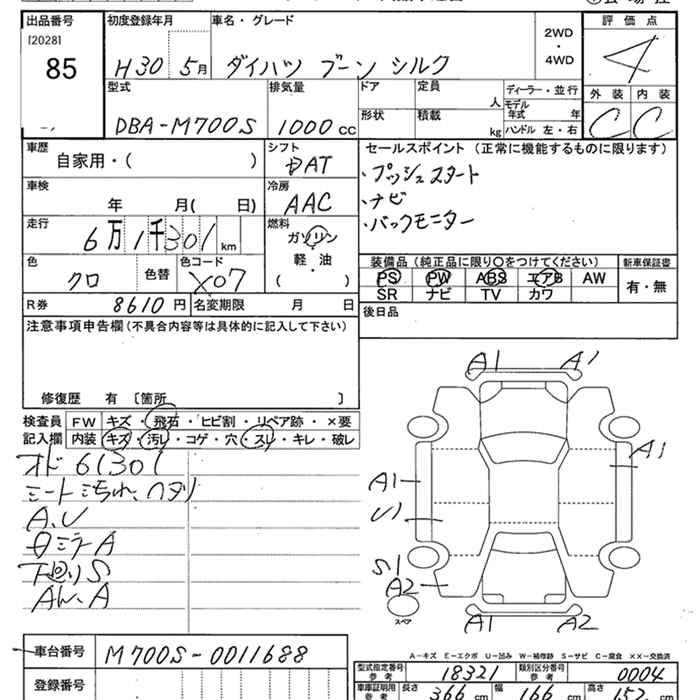 出品番号 初度登録年月 車名・グレード 2WD ・ 4WD 評価点
[2028]
85
H30 5月 ダイハツ ブーン シルク 4
型式 排気量 ドア 定員 人 ディーラー・並行 外装 内装
モデル年式 年
DBA-M700S 1000 cc 形状 積載 kg ハンドル 左・右 C C
車歴 シフト セールスポイント (正常に機能するものに限ります)
自家用・( ) DAT
・プッシュスタート
車検 冷房 ・ナビ
年 月( 日) AAC ・バックモニター
走行 燃料
6万1千301 km ガソリン
軽・油
( ・ )
色 色替 色コード
クロ X07
装備品 (純正品に限り○をつけてください) 新車保証書
PS PW ABS エアB AW 有・無
SR ナビ TV カワ
R券 8610 円 名変期限 月 日
後日品
注意事項申告欄 (不具合内容等は具体的に記入して下さい)
修復歴 有 〔箇所 〕
検査員 FW キズ ・ 飛石 ・ ヒビ割 ・ リペア跡 ・ ×要
記入欄 内装 キズ ・ 汚レ ・ コゲ ・ 穴 ・ スレ ・ キレ ・ 破レ
オド 61301
シート ヨゴレ、ヘタリ
A、U
ミラーA
下廻りS
A1 A1
A1
A1
U1
S1
A2
スペア
A1 A2
A-キズ E-エクボ U-凹み W-補修跡 S-サビ C-腐食 ××-交換済
車台番号 M700S-0011688
型式指定番号 参考 18321 類別区分番号 参考 0004
登録番号
車庫証明用 参考 長さ 366 cm 幅 166 cm 高さ 152 cm